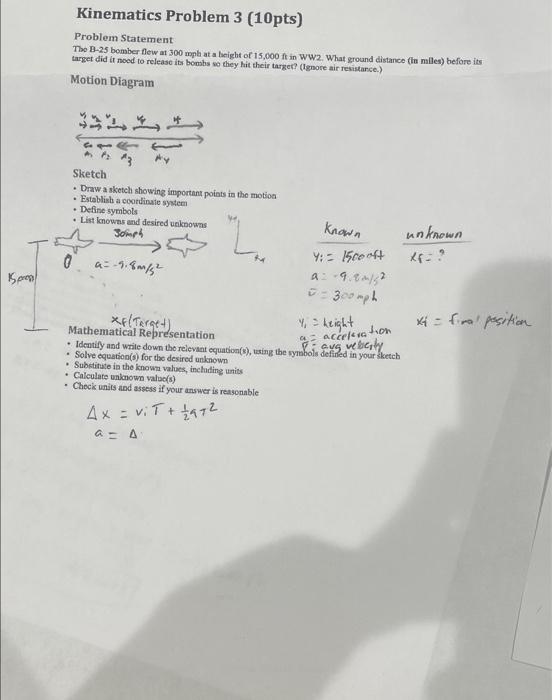 Kinematics Problem 3 (10pts)
Problem Statement
The B-25 bomber flew at 300 mph at a height of 15,000 ft in WW2. What ground distance (in miles) before its
target did it need to release its bombs so they hit their target? (Ignore air resistance.)
Motion Diagram
Sketch
• Draw a sketch showing important points in the motion
• Establish a coordinate system
• Define symbols
• List knowns and desired unknowns
Known unknown
yi = 15000ft xf = ?
a = -9.8m/s²
v̄ = 300mph
a = -9.8m/s²
0
xf (Target)
yi = height xi = final position
a = acceleration
v̄ = avg velocity
Mathematical Representation
• Identify and write down the relevant equation(s), using the symbols defined in your sketch
• Solve equation(s) for the desired unknown
• Substitute in the known values, including units
• Calculate unknown value(s)
• Check units and assess if your answer is reasonable
Δx = viT + ½aT²
a = Δ